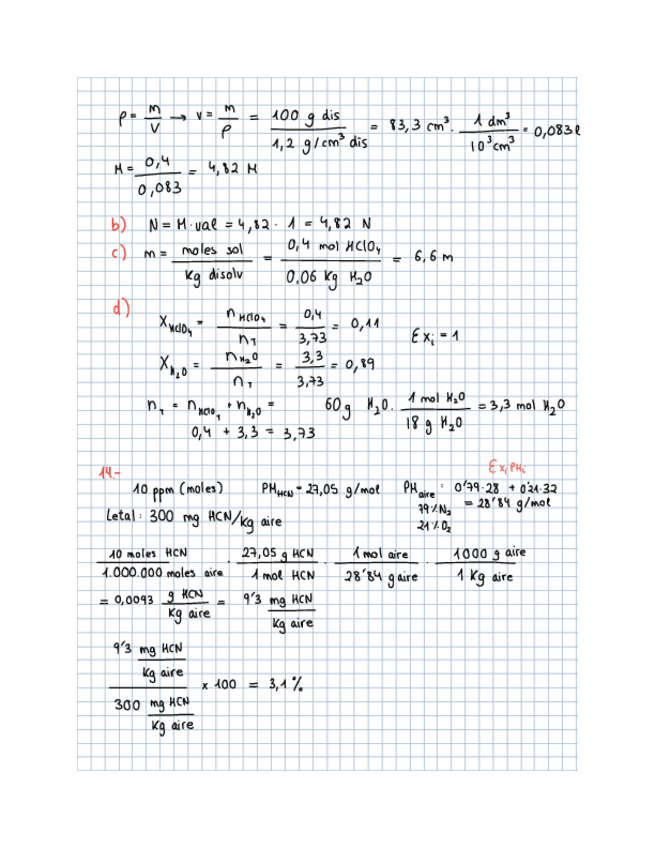 ρ = m/V → v = m/ρ = 100 g dis / 1,2 g/cm³ dis = 83,3 cm³ · 1 dm³ / 10³ cm³ = 0,083 l
M = 0,4 / 0,083 = 4,82 M
b) N = M·val = 4,82 · 1 = 4,82 N
c) m = moles sol / Kg disolv = 0,4 mol HClO₄ / 0,06 Kg H₂O = 6,6 m
d)
X HClO₄ = n HClO₄ / n_T = 0,4 / 3,73 = 0,11 Σx_i = 1
X H₂O = n H₂O / n_T = 3,3 / 3,73 = 0,89
n_T = n HClO₄ + n H₂O = 60 g H₂O · 1 mol H₂O / 18 g H₂O = 3,3 mol H₂O
0,4 + 3,3 = 3,73
14.- Σx_i PM_i
10 ppm (moles) PM HCN = 27,05 g/mol PM aire : 0'79·28 + 0'21·32
79% N₂ = 28'84 g/mol
Letal: 300 mg HCN/Kg aire 21% O₂
10 moles HCN / 1.000.000 moles aire · 27,05 g HCN / 1 mol HCN · 1 mol aire / 28'84 g aire · 1000 g aire / 1 Kg aire
= 0,0093 g HCN / Kg aire = 9'3 mg HCN / Kg aire
9'3 mg HCN / Kg aire
/ 300 mg HCN / Kg aire × 100 = 3,1%